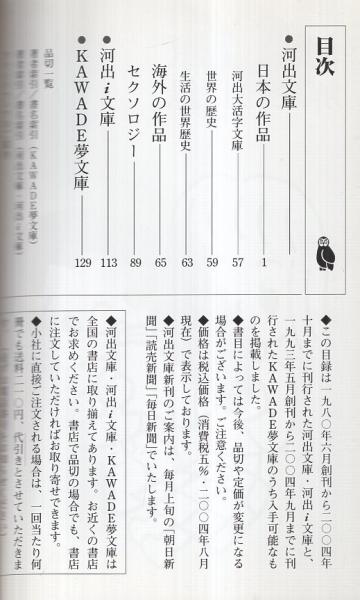 目次
●河出文庫
日本の作品 1
河出大活字文庫 57
世界の歴史 59
生活の世界歴史 63
海外の作品 65
セクソロジー 89
●河出i文庫 113
●KAWADE夢文庫 129
品切一覧
著者索引／書名索引（KAWADE夢文庫）
著者索引／書名索引（河出文庫・河出i文庫）
◆この目録は一九八〇年六月創刊から二〇〇四年
十月までに刊行された河出文庫・河出i文庫と、
一九九三年五月創刊から二〇〇四年九月までに刊
行されたKAWADE夢文庫のうち入手可能なも
のを掲載しました。
◆書目によっては今後、品切や定価が変更になる
場合がございます。ご注意ください。
◆価格は税込価格（消費税五％・二〇〇四年八月
現在）で表示しております。
◆河出文庫新刊のご案内は、毎月上旬の「朝日新
聞」「読売新聞」「毎日新聞」でいたします。
◆河出文庫・河出i文庫・KAWADE夢文庫は
全国の書店に取り揃えてあります。お近くの書店
でお求めください。書店で品切の場合でも、書店
に注文していただければお取り寄せできます。
◆小社に直接ご注文される場合は、一回当たり何
冊でも送料二一〇円、代引きとさせていただきま